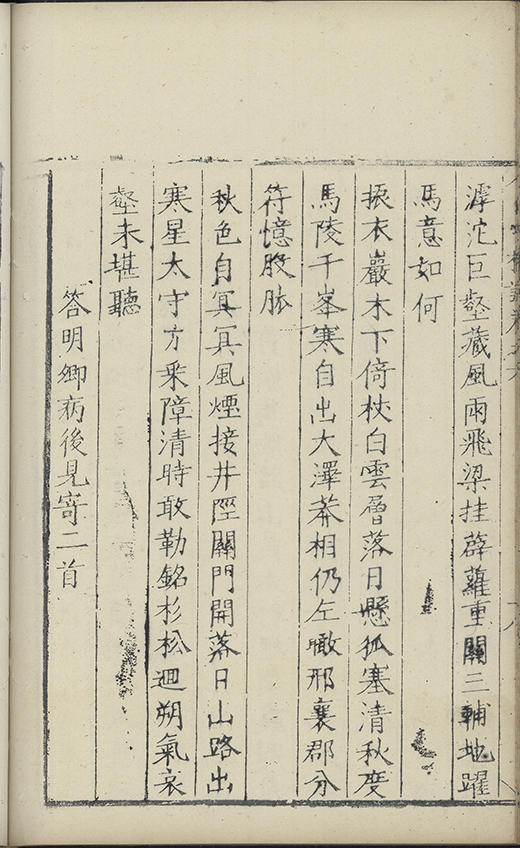 滹沱巨壑藏風雨飛梁挂薜蘿重關三輔地躍
馬意如何
振衣巖木下倚杖白雲層落日懸孤塞清秋度
馬陵千峯寒自出大澤莽相仍左瞰邢襄郡分
符憶股肱
秋色自冥冥風煙接井陘關門開落日山路出
寒星太守方乘障清時敢勒銘杉松迴朔氣哀
壑未堪聽
答明卿病後見寄二首